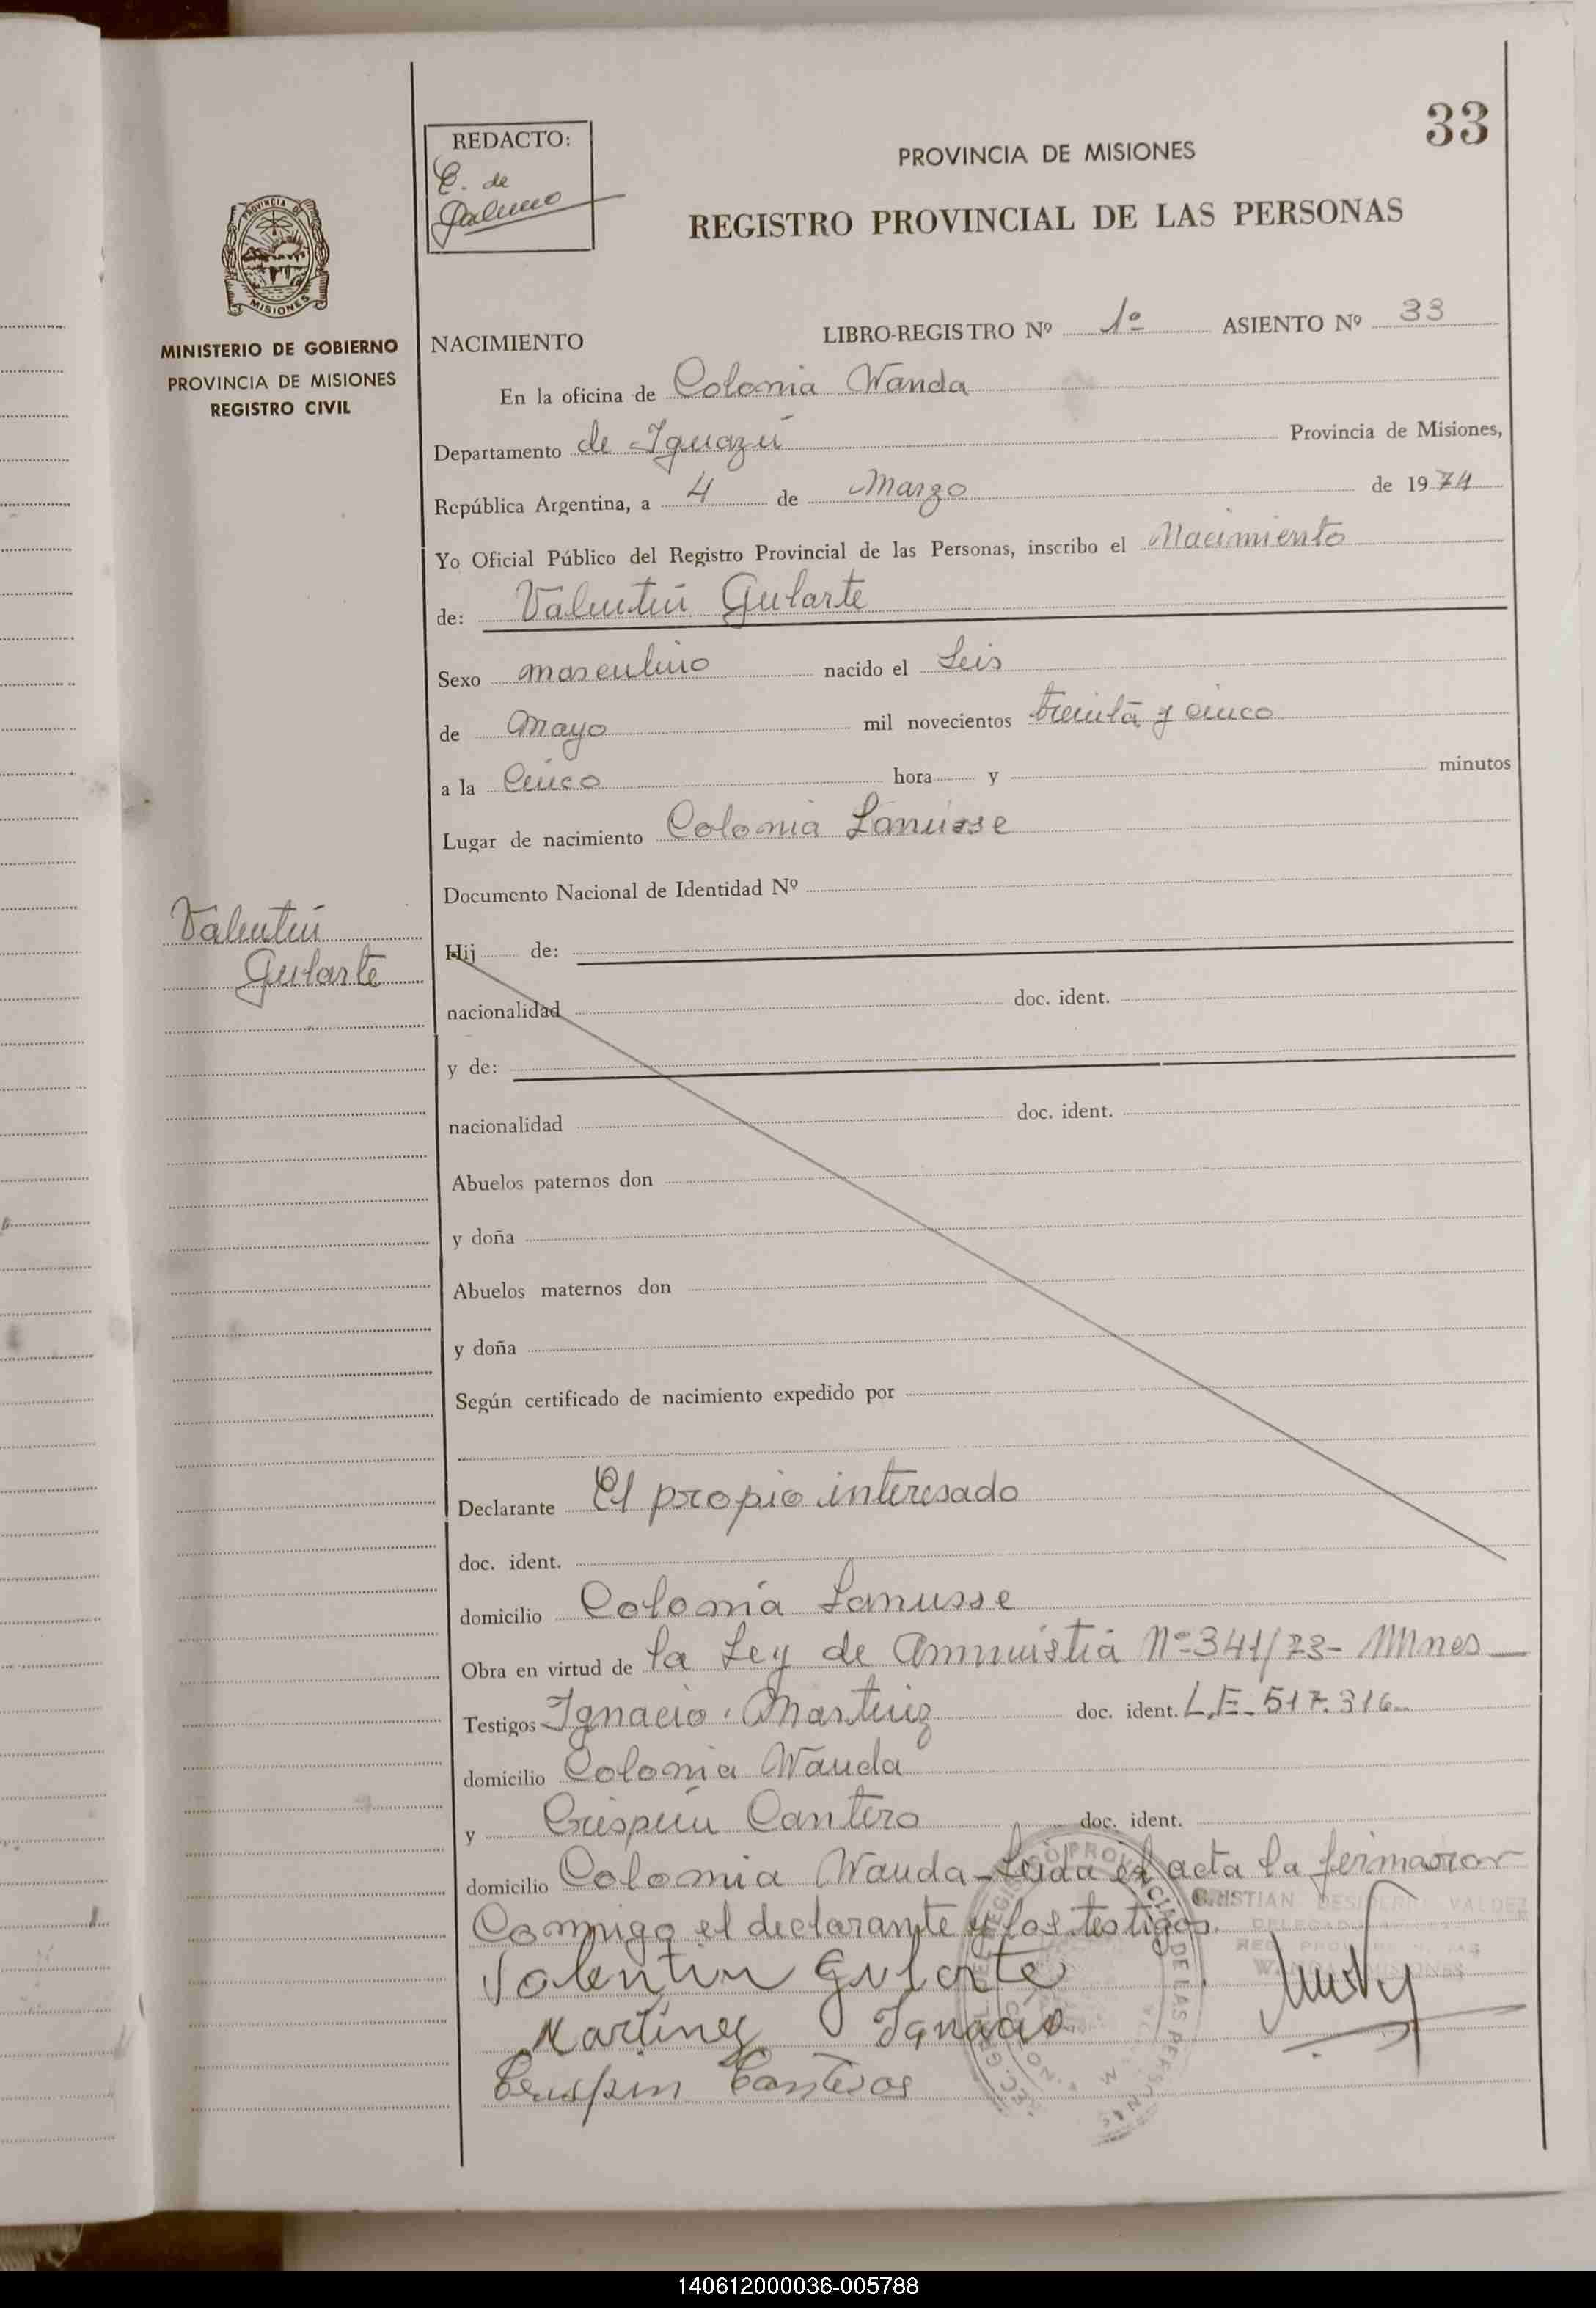 33
REDACTO:
E. de
PROVINCIA DE MISIONES
REGISTRO PROVINCIAL DE LAS PERSONAS
PROVINCIA DE
MISIONES
MINISTERIO DE GOBIERNO
PROVINCIA DE MISIONES
REGISTRO CIVIL
NACIMIENTO LIBRO-REGISTRO Nº 1º ASIENTO Nº 33
En la oficina de Colonia Wanda
Departamento de Iguazú Provincia de Misiones,
República Argentina, a 4 de Marzo de 1974
Yo Oficial Público del Registro Provincial de las Personas, inscribo el Nacimiento
de: Valentín Gularte
Sexo masculino nacido el Seis
de Mayo mil novecientos treinta y cinco
a la Cinco hora y minutos
Lugar de nacimiento Colonia Lanusse
Documento Nacional de Identidad Nº
Valentín
Gularte
Hij de:
nacionalidad doc. ident.
y de:
nacionalidad doc. ident.
Abuelos paternos don
y doña
Abuelos maternos don
y doña
Según certificado de nacimiento expedido por
Declarante El propio interesado
doc. ident.
domicilio Colonia Lanusse
Obra en virtud de la Ley de Amnistia Nº 341/73- Mnes
Testigos Ignacio Martinez doc. ident. L.E. 517.316
domicilio Colonia Wanda
y Crispín Cantero doc. ident.
domicilio Colonia Wanda - Leida el acta la firmaron
Conmigo el declarante y los testigos.
Valentin Gularte
Martinez Ignacio
Cantero
140612000036-005788